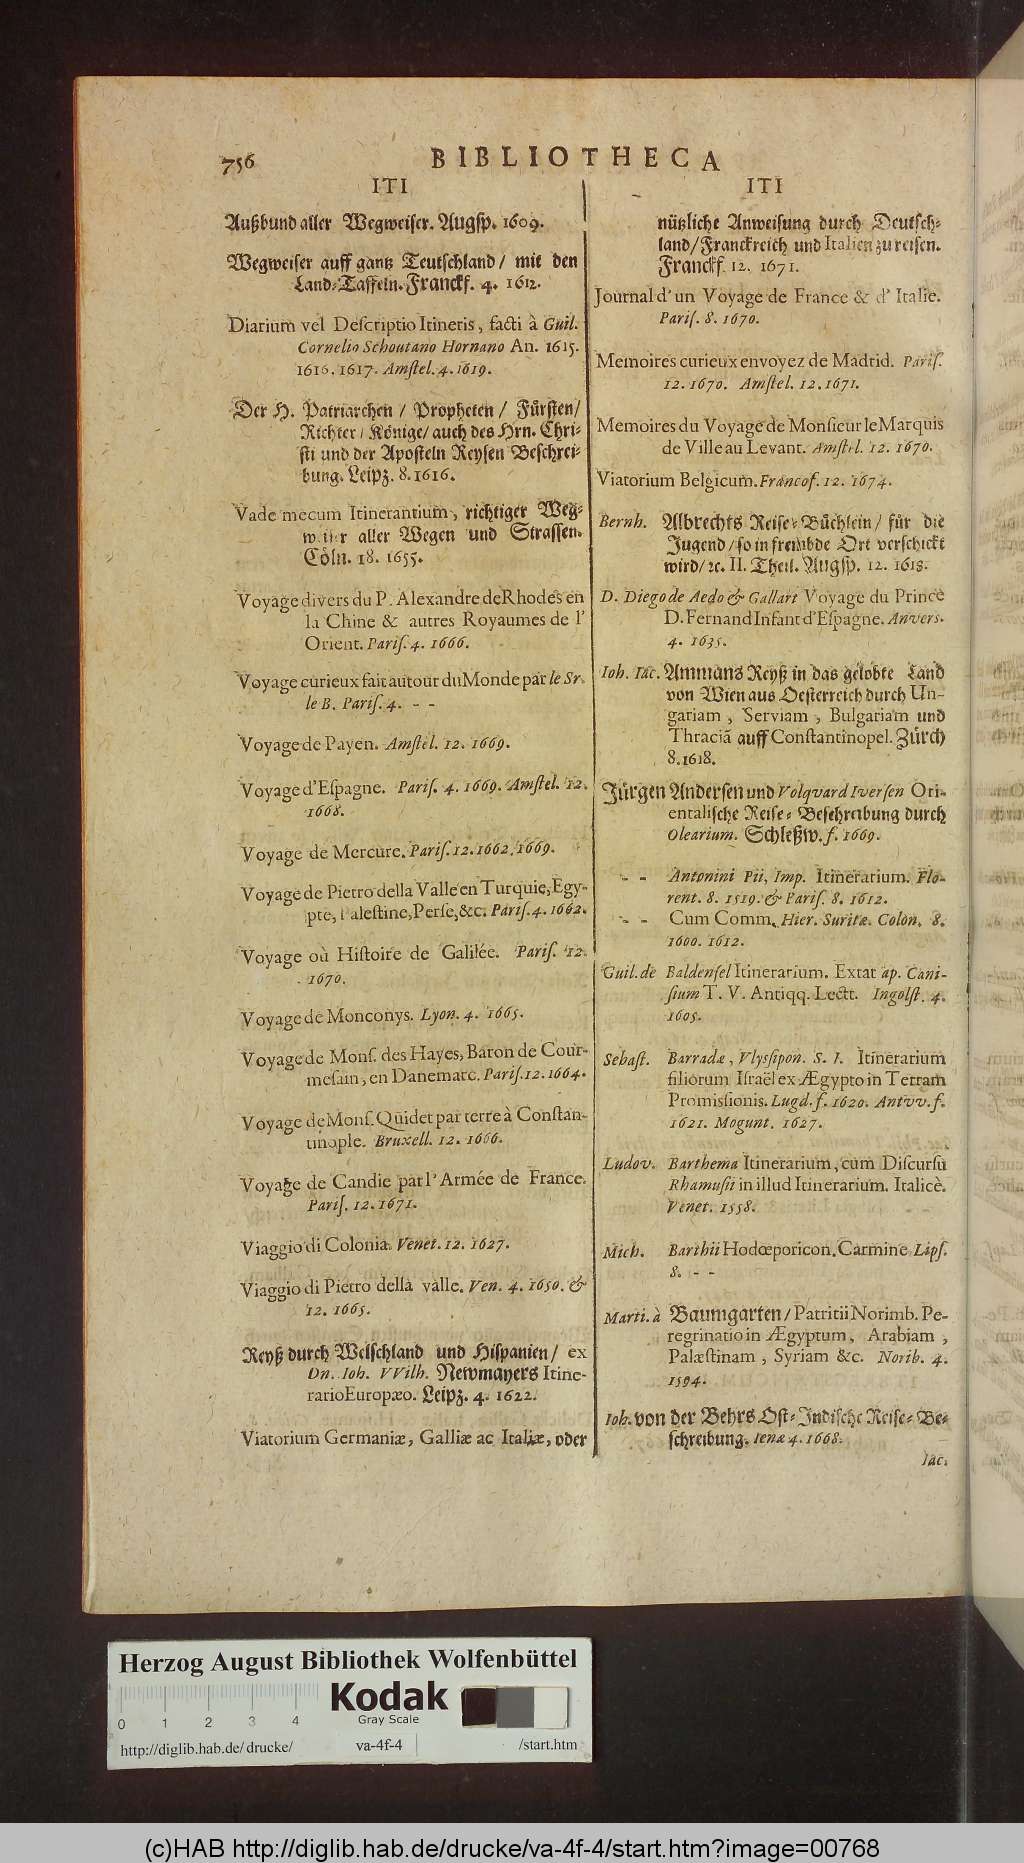 756 BIBLIOTHECA
ITI
Außbund aller Wegweiser. Augsp. 1609.
Wegweiser auff gantz Teutschland / mit den
Land-Taffeln. Franckf. 4. 1612.
Diarium vel Descriptio Itineris, facti à Guil.
Cornelio Schoutano Hornano An. 1615.
1616. 1617. Amstel. 4. 1619.
Der H. Patriarchen / Propheten / Fürsten/
Richter / Könige / auch des Hrn. Chri-
sti und der Aposteln Reysen Beschrei-
bung. Leipz. 8. 1616.
Vade mecum Itinerantium, richtiger Weg-
weiser aller Wegen und Strassen.
Cöln. 18. 1655.
Voyage divers du P. Alexandre de Rhodes en
la Chine & autres Royaumes de l'
Orient. Paris. 4. 1666.
Voyage curieux fait autour du Monde par le Sr.
le B. Paris. 4. - -
Voyage de Payen. Amstel. 12. 1669.
Voyage d'Espagne. Paris. 4. 1669. Amstel. 12.
1668.
Voyage de Mercure. Paris. 12. 1662. 1669.
Voyage de Pietro della Valle en Turquie, Egy-
pte, Palestine, Perse, &c. Paris. 4. 1662.
Voyage où Histoire de Galilée. Paris. 12.
1670.
Voyage de Monconys. Lyon. 4. 1665.
Voyage de Mons. des Hayes, Baron de Cour-
mesain, en Danemarc. Paris. 12. 1664.
Voyage de Mons. Quidet par terre à Constan-
tinople. Bruxell. 12. 1666.
Voyage de Candie par l'Armée de France.
Paris. 12. 1671.
Viaggio di Colonia. Venet. 12. 1627.
Viaggio di Pietro della valle. Ven. 4. 1650. &
12. 1665.
Reyß durch Welschland und Hispanien / ex
Dn. Ioh. VVilh. Newmayers Itine-
rario Europæo. Leipz. 4. 1622.
Viatorium Germaniæ, Galliæ ac Italiæ, oder
ITI
nützliche Anweisung durch Deutsch-
land / Franckreich und Italien zu reisen.
Franckf. 12. 1671.
Journal d'un Voyage de France & d'Italie.
Paris. 8. 1670.
Memoires curieux envoyez de Madrid. Paris.
12. 1670. Amstel. 12. 1671.
Memoires du Voyage de Monsieur le Marquis
de Ville au Levant. Amstel. 12. 1670.
Viatorium Belgicum. Francof. 12. 1674.
Bernh. Albrechts Reise-Büchlein / für die
Jugend / so in frembde Ort verschickt
wird / ꝛc. II. Theil. Augsp. 12. 1618.
D. Diego de Aedo & Gallart Voyage du Prince
D. Fernand Infant d'Espagne. Anvers.
4. 1635.
Ioh. Iac. Ammans Reyß in das gelobte Land
von Wien aus Oesterreich durch Un-
gariam, Serviam, Bulgariam und
Thraciã auff Constantinopel. Zürch
8. 1618.
Jürgen Andersen und Volqvard Iversen Ori-
entalische Reise-Beschreibung durch
Olearium. Schleßw. f. 1669.
- - Antonini Pii, Imp. Itinerarium. Flo-
rent. 8. 1519. & Paris. 8. 1612.
- - Cum Comm. Hier. Suritæ. Colon. 8.
1600. 1612.
Guil. de Baldensel Itinerarium. Extat ap. Cani-
sium T. V. Antiqq. Lectt. Ingolst. 4.
1605.
Sebast. Barradæ, Vlyssipon. S. I. Itinerarium
filiorum Israël ex Ægypto in Terram
Promissionis. Lugd. f. 1620. Antvv. f.
1621. Mogunt. 1627.
Ludov. Barthema Itinerarium, cum Discursu
Rhamusii in illud Itinerarium. Italicè.
Venet. 1558.
Mich. Barthii Hodœporicon. Carmine Lips.
8. - -
Marti. à Baumgarten / Patritii Norimb. Pe-
regrinatio in Ægyptum, Arabiam,
Palæstinam, Syriam &c. Norib. 4.
1594.
Ioh. von der Behrs Ost-Indische Reise-Be-
schreibung. Ienæ 4. 1668.
Iac.
Herzog August Bibliothek Wolfenbüttel
Kodak
Gray Scale
0 1 2 3 4
http://diglib.hab.de/drucke/ va-4f-4 /start.htm
(c)HAB http://diglib.hab.de/drucke/va-4f-4/start.htm?image=00768